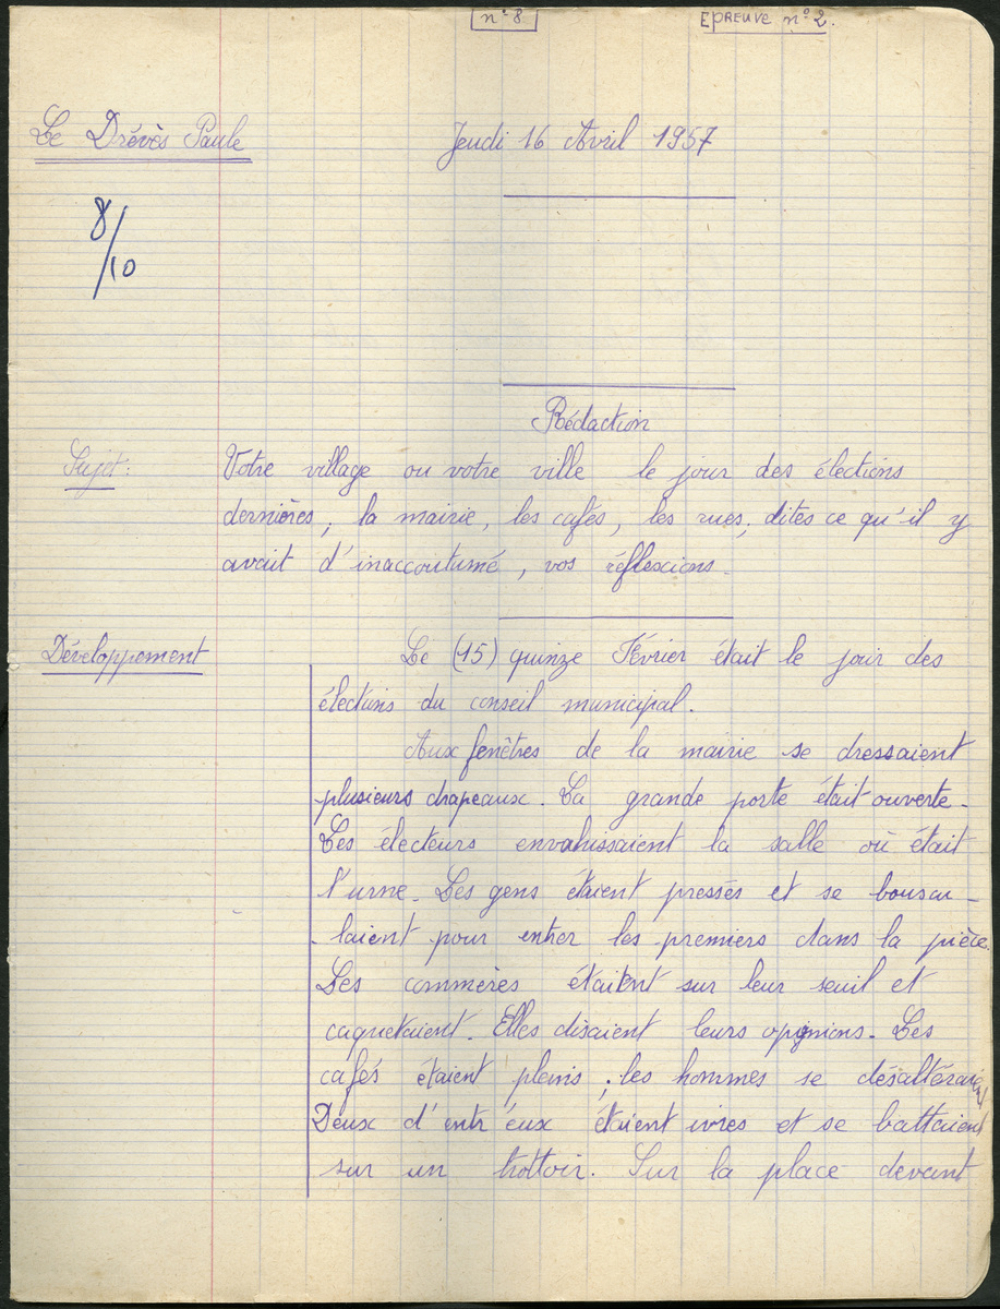 n° 8
EPREUVE n° 2.
Le Drévès Paule
Jeudi 16 Avril 1957
8/10
Rédaction
Sujet: Votre village ou votre ville le jour des élections
dernières, la mairie, les cafés, les rues; dites ce qu'il y
avait d'inaccoutumé, vos réflexions.
Développement
Le (15) quinze Février était le jour des
élections du conseil municipal.
Aux fenêtres de la mairie se dressaient
plusieurs drapeaux. La grande porte était ouverte.
Les électeurs envahissaient la salle où était
l'urne. Les gens étaient pressés et se bouscu-
laient pour entrer les premiers dans la pièce.
Les commères étaient sur leur seuil et
caquetaient. Elles disaient leurs opignions. Les
cafés étaient pleins ; les hommes se désaltéraient
Deux d'entr'eux étaient ivres et se battaient
sur un trottoir. Sur la place devant